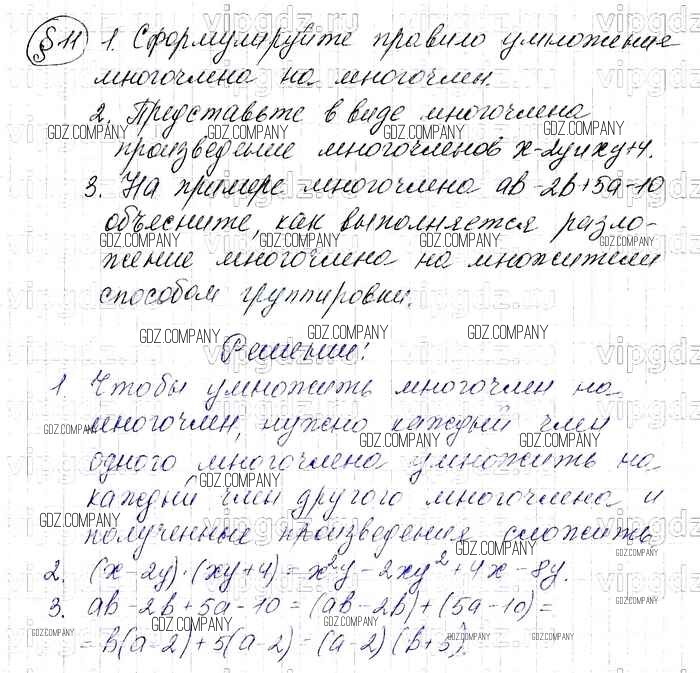 § 11 1. Сформулируйте правило умножения
многочлена на многочлен.
2. Представьте в виде многочлена
произведение многочленов x-2y и xy+4.
3. На примере многочлена ab-2b+5a-10
объясните, как выполняется разло-
жение многочлена на множители
способом группировки.
Решение:
1 Чтобы умножить многочлен на
многочлен, нужно каждый член
одного многочлена умножить на
каждый член другого многочлена и
полученные произведения сложить
2. (x-2y)·(xy+4)=x²y-2xy²+4x-8y.
3. ab-2b+5a-10=(ab-2b)+(5a-10)=
=b(a-2)+5(a-2)=(a-2)(b+5).
GDZ.COMPANY
vipgdz.ru